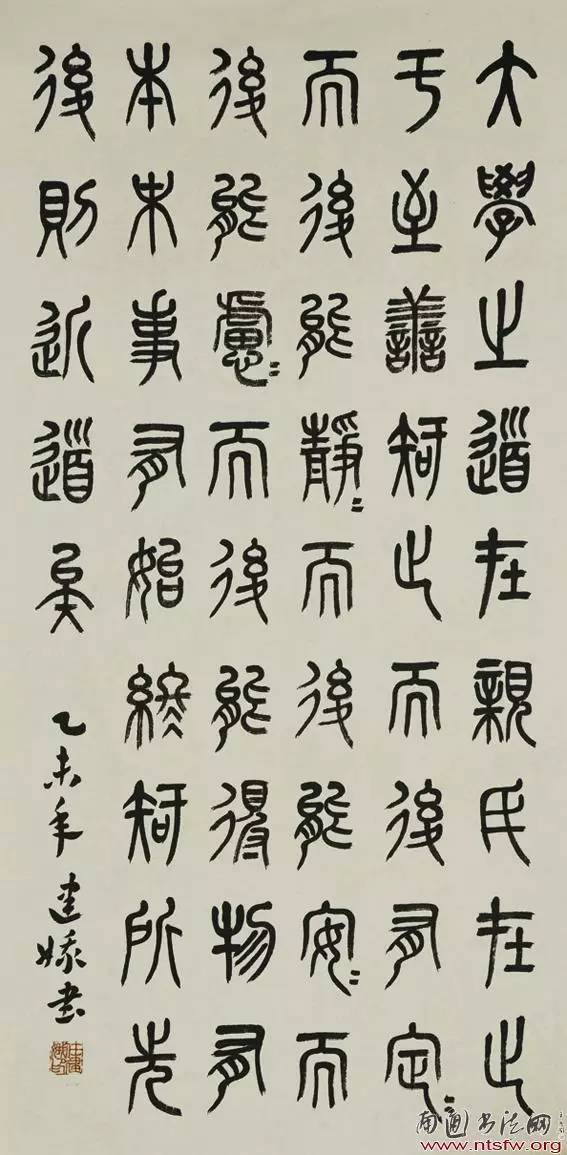 大學之道在親民在止
于至善知止而後有定=
而後能靜=而後能安=而
後能慮=而後能得物有
本末事有始終知所先
後則近道矣
乙未年建娥書
南通书法网
www.ntsfw.org